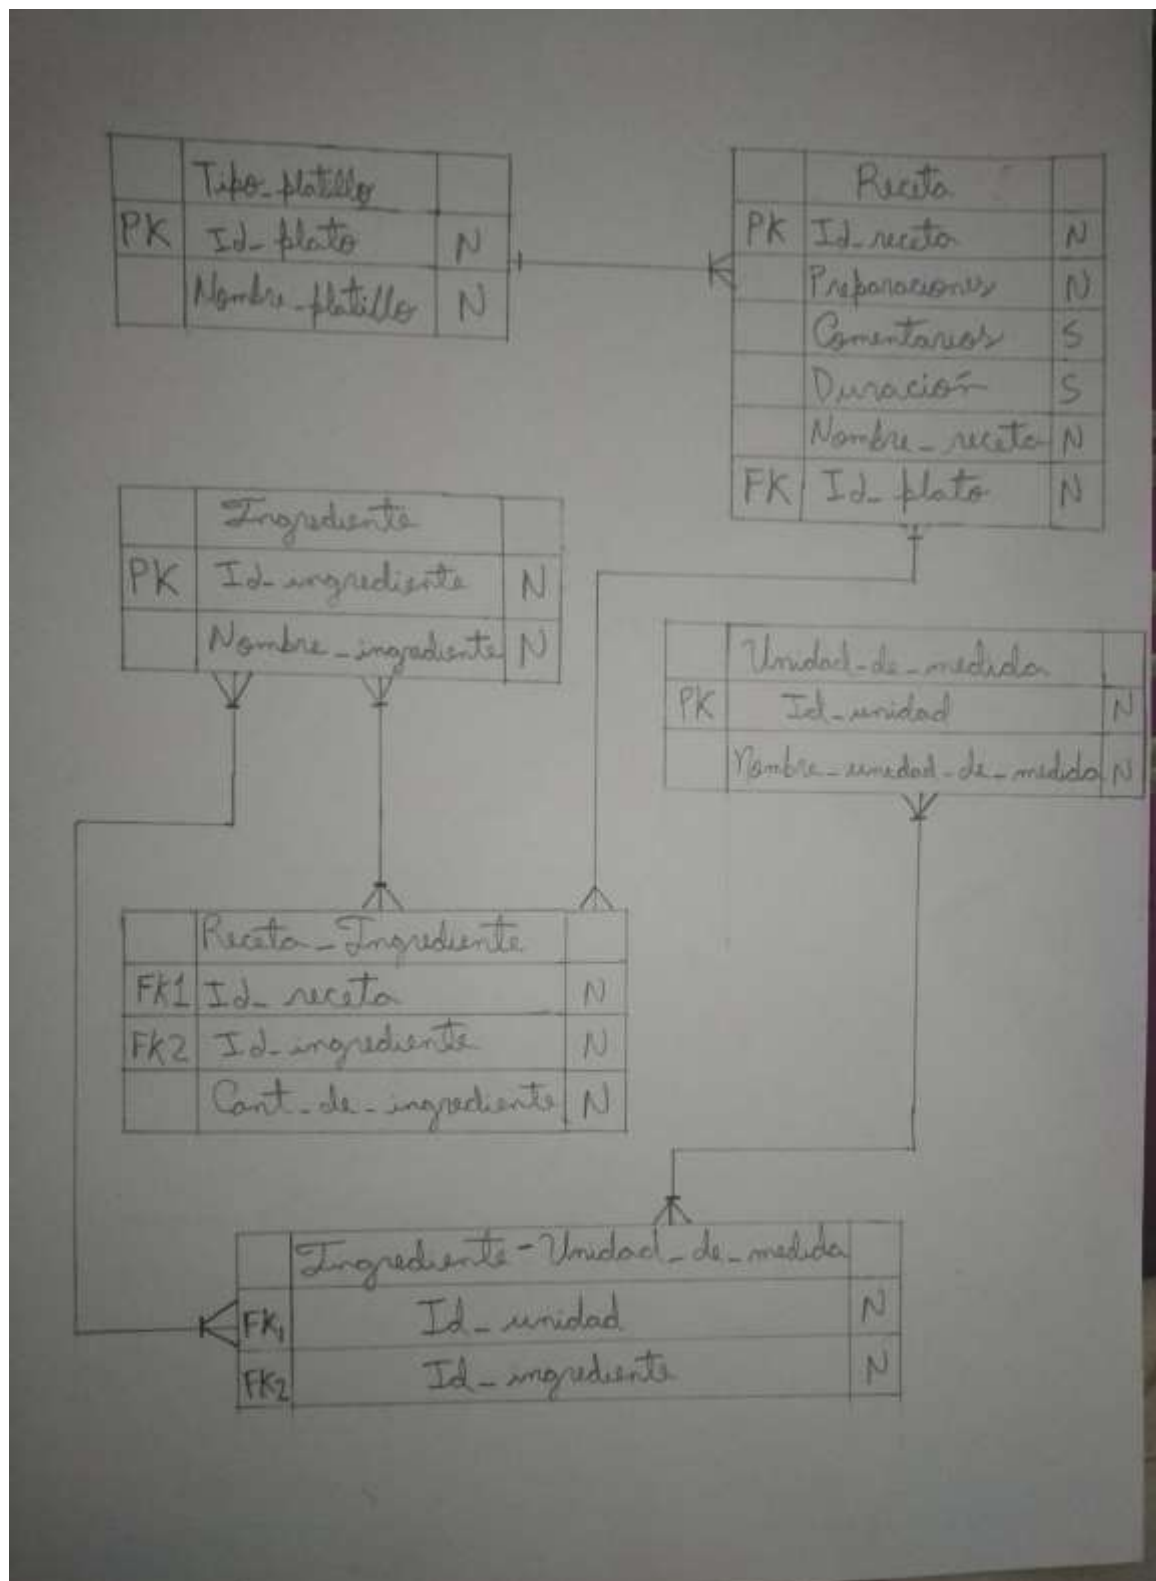 Tipo_platillo
PK Id_plato N
Nombre_platillo N
Receta
PK Id_receta N
Preparaciones N
Comentarios S
Duración S
Nombre_receta N
FK Id_plato N
Ingrediente
PK Id_ingrediente N
Nombre_ingrediente N
Unidad_de_medida
PK Id_unidad N
Nombre_unidad_de_medida N
Receta_Ingrediente
FK1 Id_receta N
FK2 Id_ingrediente N
Cant_de_ingrediente N
Ingrediente-Unidad_de_medida
FK1 Id_unidad N
FK2 Id_ingrediente N